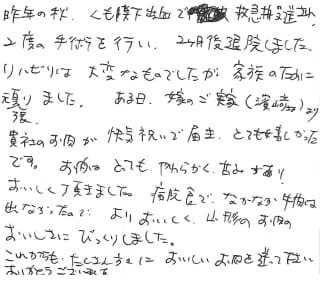 昨年の秋、くも膜下出血で救急搬送され、
2度の手術を行い、2ヶ月後退院しました。
リハビリは大変なものでしたが家族のために
頑張りました。ある日、嫁のご実家(濱崎様)より
貴社のお肉が快気祝いで届き、とても嬉しかった
です。お肉はとてもやわらかく、甘みあり
おいしく頂きました。病院食でなかなか牛肉は
出なかったので、よりおいしく、山形のお肉の
おいしさにびっくりしました。
これからも、たくさん方々においしいお肉を送って下さい
ありがとうございました